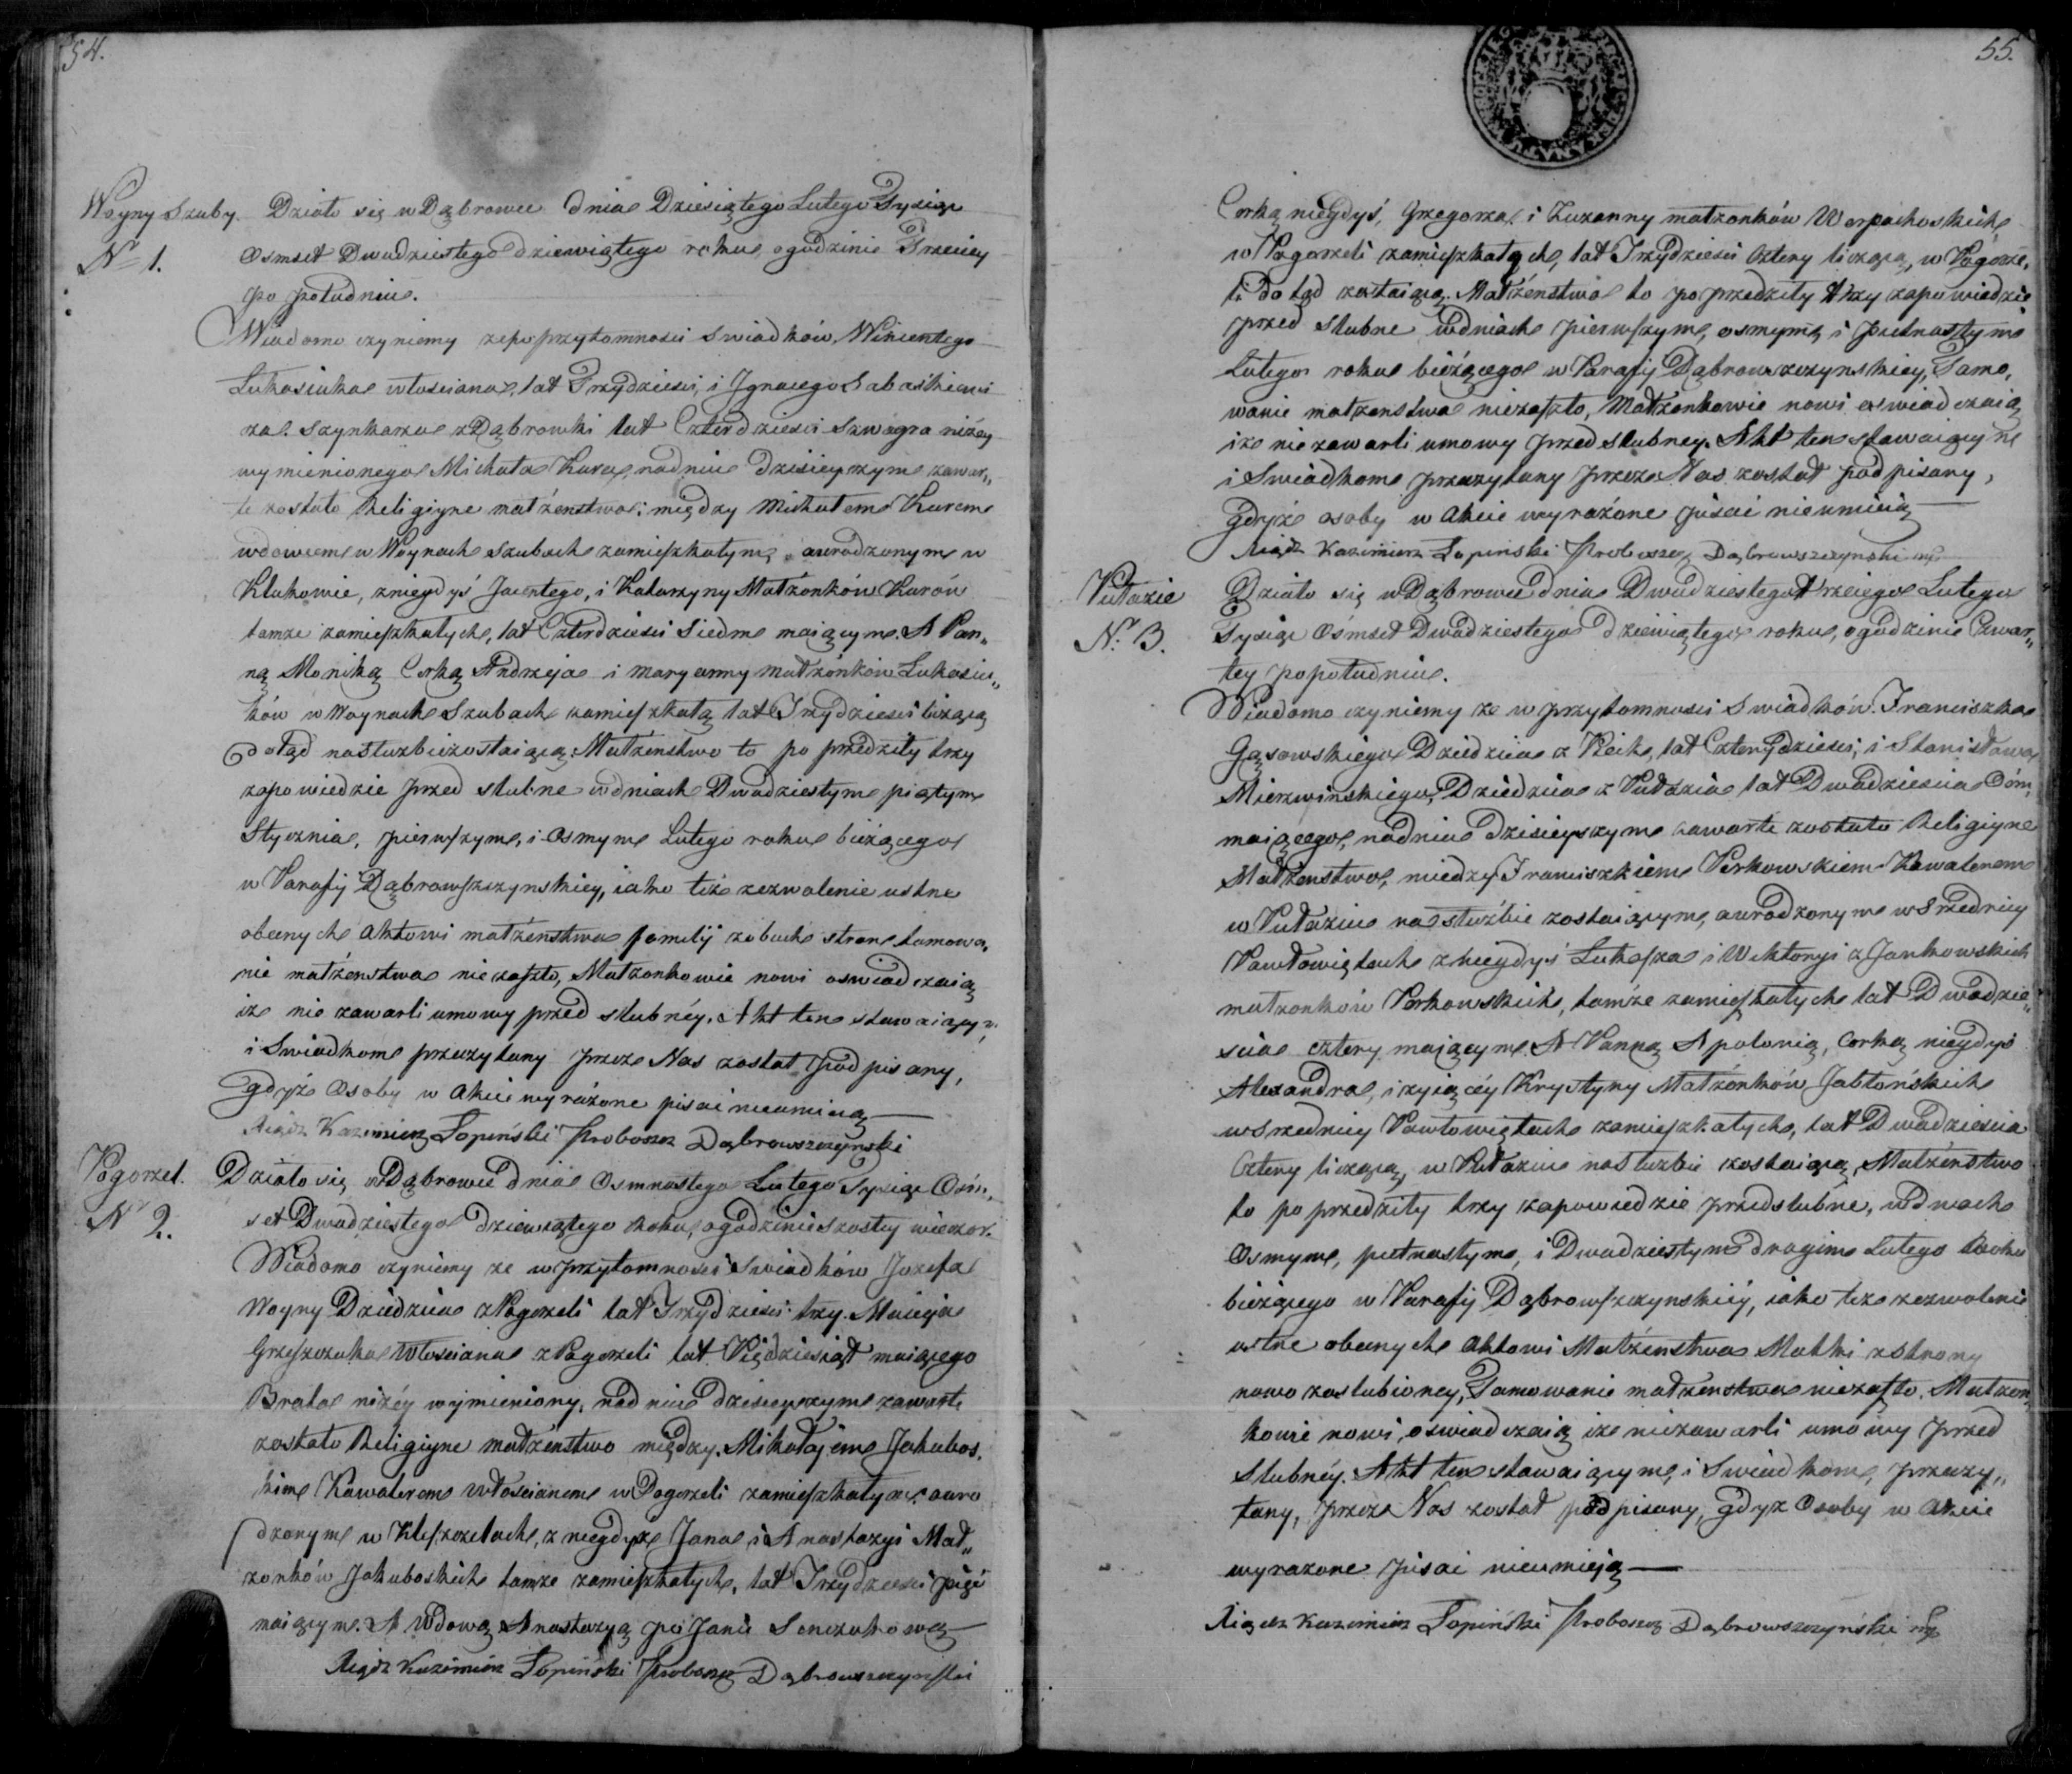 54.
Woyny Szuby.
N 1.
Działo się w Dąbrowce dnia Dziesiątego Lutego Tysiąc
Osmset Dwudziestego dziewiątego roku, ogodzinie Trzeciey
po południu.
Wiadomo czyniemy że po przytomnosci Swiadków, Wincentego
Łukasiuka włościana, lat Trzydziesci, i Ignacego
Szynkarza z Dąbrowki lat Czterdziesci Szwagra niżey
wymienionego Michała Kura, nadniu dzisieyszym zawar„
te zostało Religiyne małżenstwo: między Michałem Kurem
wdowcem w Woynach Szubach zamieszkałym, aurodzonym w
Klukowie, z niegdyś Jacentego, i Katarzyny Małżonków Kurów
tamże zamieszkałych, lat Czterdziesci Siedm maiącym. A Pan„
ną Moniką Corką Andrzeja i Maryanny małżonków Łukasiu„
ków w Woynach Szubach zamieszkałą lat Trzydziesci liczącą
dotąd nasłuzbiezostaiącą. Małżenstwo to po przedziły trzy
zapowiedzie przed slubne wdniach Dwudziestym piątym
Stycznia, pierwszym, i Osmym Lutego roku bieżącego
w Parafij Dąbrowszczynskiey, iako też zezwolenie ustne
obecnych aktowi małżenstwa familij zobuch stron tamowa„
nie małżenstwa nie zaszło, Małzonkowie nowi oswiadczaią
iże nie zawarli umowy przed slubnéy. Akt ten stawaiącym
i Swiadkom przeczytany przeze Nas został podpisany,
gdyże Osoby w akcie wyrażone pisai nieumieią
Xiądz Kazimierz Łopiński Proboszcz Dąbrowszczynski
Pogorzel.
N 2.
Działo się w Dąbrowie dnia Osmnastego Lutego Tysiąc Osm„
set Dwudziestego dziewiątego Roku, ogodzinie szostey wieczor.
Wiadomo czyniemy że w przytomnosci Swiadków Jozefa
Woyny Dziedzica z Pogorzeli lat Trzydziesci trzy. Macieja
Grzeszczuka Włosciana z Pogorzeli lat Pięćdziesiąt maiącego
Brata niżéy wymieniony, nad niu dzisieyszym zawarte
zostało Religiyne małżenstwo między. Mikołajem Jakubos„
kim Kawalerem Włoscianem w Pogorzeli zamieszkałym auro
dzonym w Kleszczelach, z niegdyże Jana i Anastazyi Mał„
zonków Jakuboskich tamże zamieszkałych, lat Trzydziesci pięć
maiącym. A Wdową Anastazyą po Janie Sonczukową
Xiądz Kazimierz Łopiński Proboszcz Dąbrowszczynski
55.
Corką niegdyś, Grzegorza, i Zuzanny małzonków Warpechoskich
w Pogorzeli zamieszkałych, lat Trzydziesci Cztery liczącą, w Pogorze„
li do tąd zostaiącą. Małżenstwo to poprzedziły trzy zapowiedzie
przed slubne wdniach pierwszym, osmym i pietnastym
Lutego roku bieżącego w Parafij Dąbrowszczynskiey, Tamo„
wanie małzenstwa niezaszło, Małżonkowie nowi oswiadczaią
iże nie zawarli umowy przed slubney. Akt ten stawaiącym
i Swiadkom przeczytany przeze Nas został podpisany,
gdyże osoby w akcie wyrażone pisai nieumieią
Xiądz Kazimierz Łopiński Proboszcz Dąbrowszczynski mp
Pułazie
N. 3.
Działo się w Dąbrowie dnia Dwudziestego trzeciego Lutego
Tysiąc Osmset Dwudziestego dziewiątego roku, ogodzinie Czwar„
tey popołudniu.
Wiadomo czyniemy że w przytomnosci Swiadków. Franciszka
Gąsowskiego Dziedzica z lat Czterydziesci, i Stanisława
Mierzwinskiego, Dziedzica z Pułazia lat Dwadziescia Osm,
maiącego, nadniu dzisieyszym zawarte zostało Religiyne
Małżenstwo, miedzy Franciszkiem Perkowskiem Kawalerem
w Pułaziu nasłużbie zostaiącym, aurodzonym w Srednicy
Pawłowiętach z niegdyś Łukasza i Wiktoryi z Jankowskich
małzonków Perkowskich, tamże zamieszkałych lat Dwadzie„
scia cztery mającym. A Panną Apolonią, Corką niegdyś
Alexandra, i zyiącéy Krystyny Małżonków Jabłońskich
w Srednicy Pawłowiętach zamieszkałych, lat Dwadziescia
Cztery liczącą, w Pułaziu nasłuzbie zostaiącą, Małżenstwo
to po przedziły trzy zapowiedzie przedslubne, wdniach
Osmym, pietnastym, i Dwudziestym drugim Lutego Roku
bieżącego w Parafij Dąbrowszczynskiéy, iako też zezwolenie
ustne obecnych aktowi Małżenstwa Matki zstrony
nowo zaslubioney, Tamowanie małżenstwa niezaszło. Małzon„
kowie nowi, oswiadczaią iże niezawarli umowy przed
slubnéy. Akt ten stawaiącym, i Swiadkom, przeczy„
tany, przeze Nas został podpisany, gdyż Osoby w akcie
wyrazone pisai nieumieją
Xiądz Kazimierz Łopiński Proboszcz Dąbrowszczyński mp